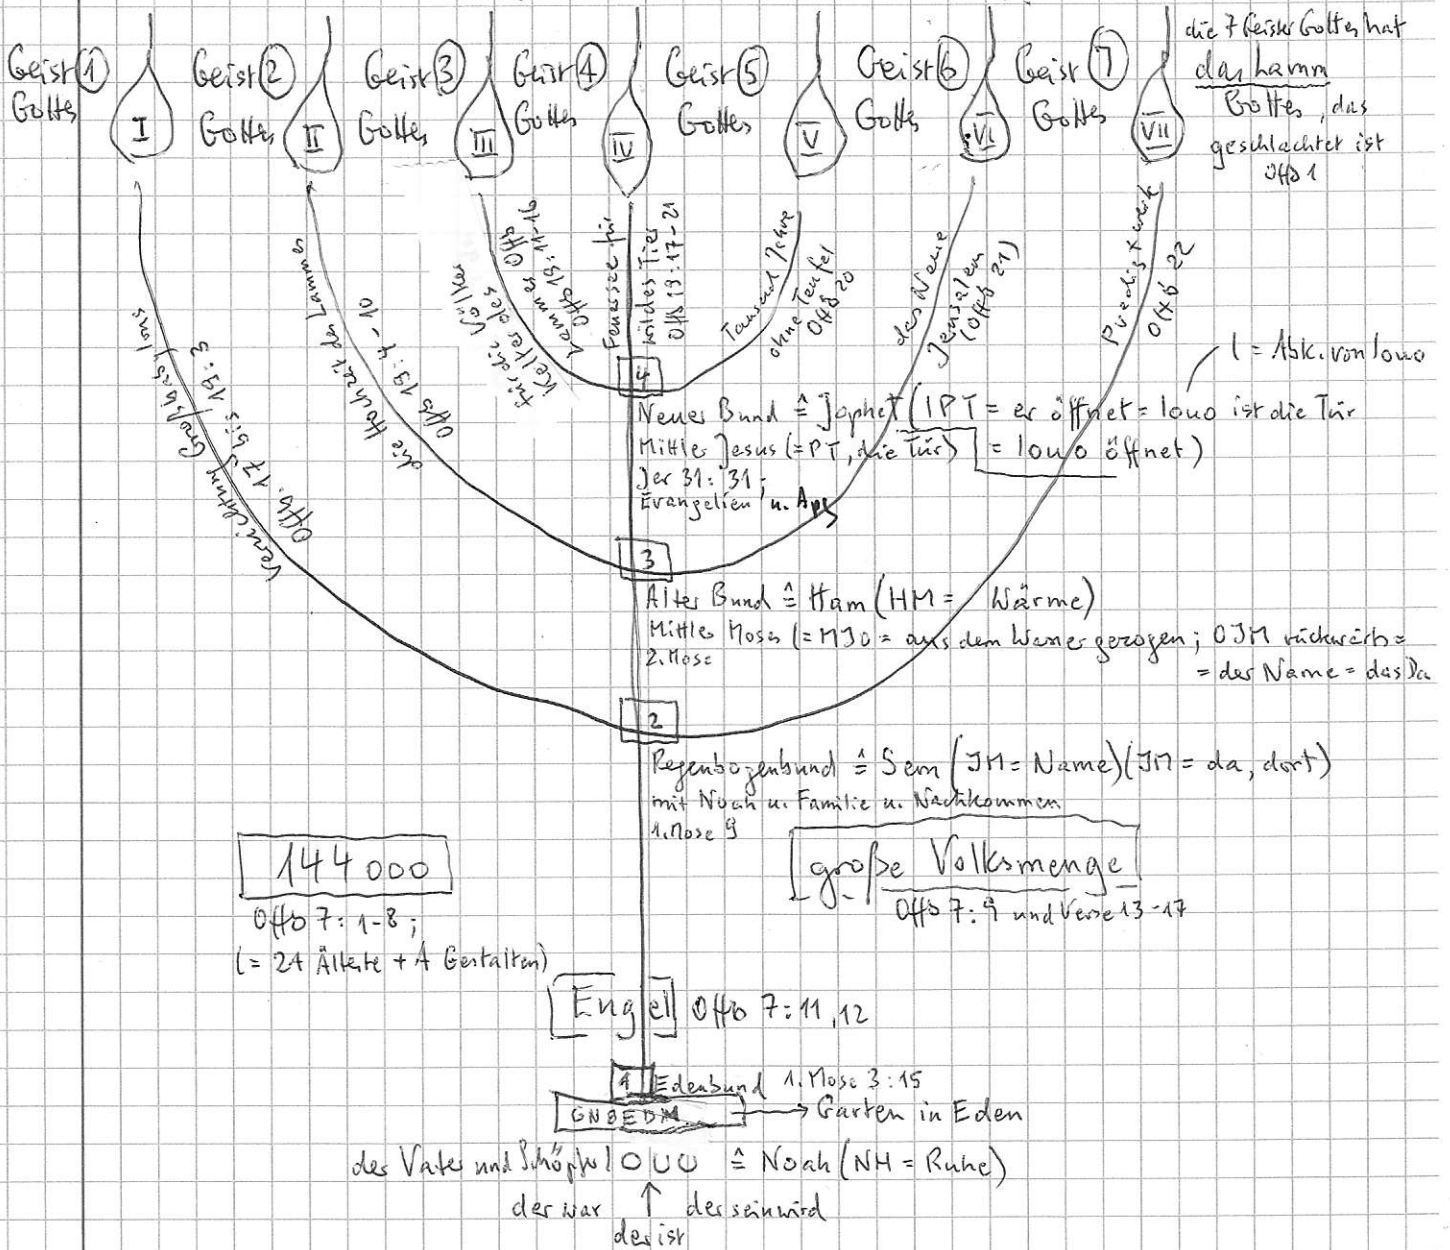 Geist 1 Gottes
Geist 2 Gottes
Geist 3 Gottes
Geist 4 Gottes
Geist 5 Gottes
Geist 6 Gottes
Geist 7 Gottes
die 7 Geister Gottes hat
das Lamm
Gottes, das
geschlachtet ist
Offb 1
I
II
III
IV
V
VI
VII
Vernichtung Großbabylons
Offb. 17 bis 19:3
die Hochzeit des Lammes
Offb 19:4-10
für die Völker
Kelter des
Lammes Offb
Offb 19:11-16
Feuersee für
wildes Tier
Offb 19:17-21
Tausend Jahre
ohne Teufel
Offb 20
das Neue
Jerusalem
(Offb 21)
Predigtwerk
Offb 22
l = Abk. von louo
4
Neuer Bund ≙ Japhet (IPT = er öffnet = louo ist die Tür
Mittler Jesus (= PT, die Tür) = louo öffnet)
Jer 31:31;
Evangelien u. Apg
3
Alter Bund ≙ Ham (HM = Wärme)
Mittler Moses (= MJO = aus dem Wasser gezogen; OJM rückwärts =
= der Name = das Da
2. Mose
2
Regenbogenbund ≙ Sem (JM = Name) (JM = da, dort)
mit Noah u. Familie u. Nachkommen
1. Mose 9
144000
Offb 7:1-8;
(= 24 Älteste + 4 Gestalten)
große Volksmenge
Offb 7:9 und Verse 13-17
Engel Offb 7:11,12
1 Edenbund 1. Mose 3:15
GNBEDN → Garten in Eden
der Vater und Schöpfer louo ≙ Noah (NH = Ruhe)
der war ↑ der sein wird
der ist